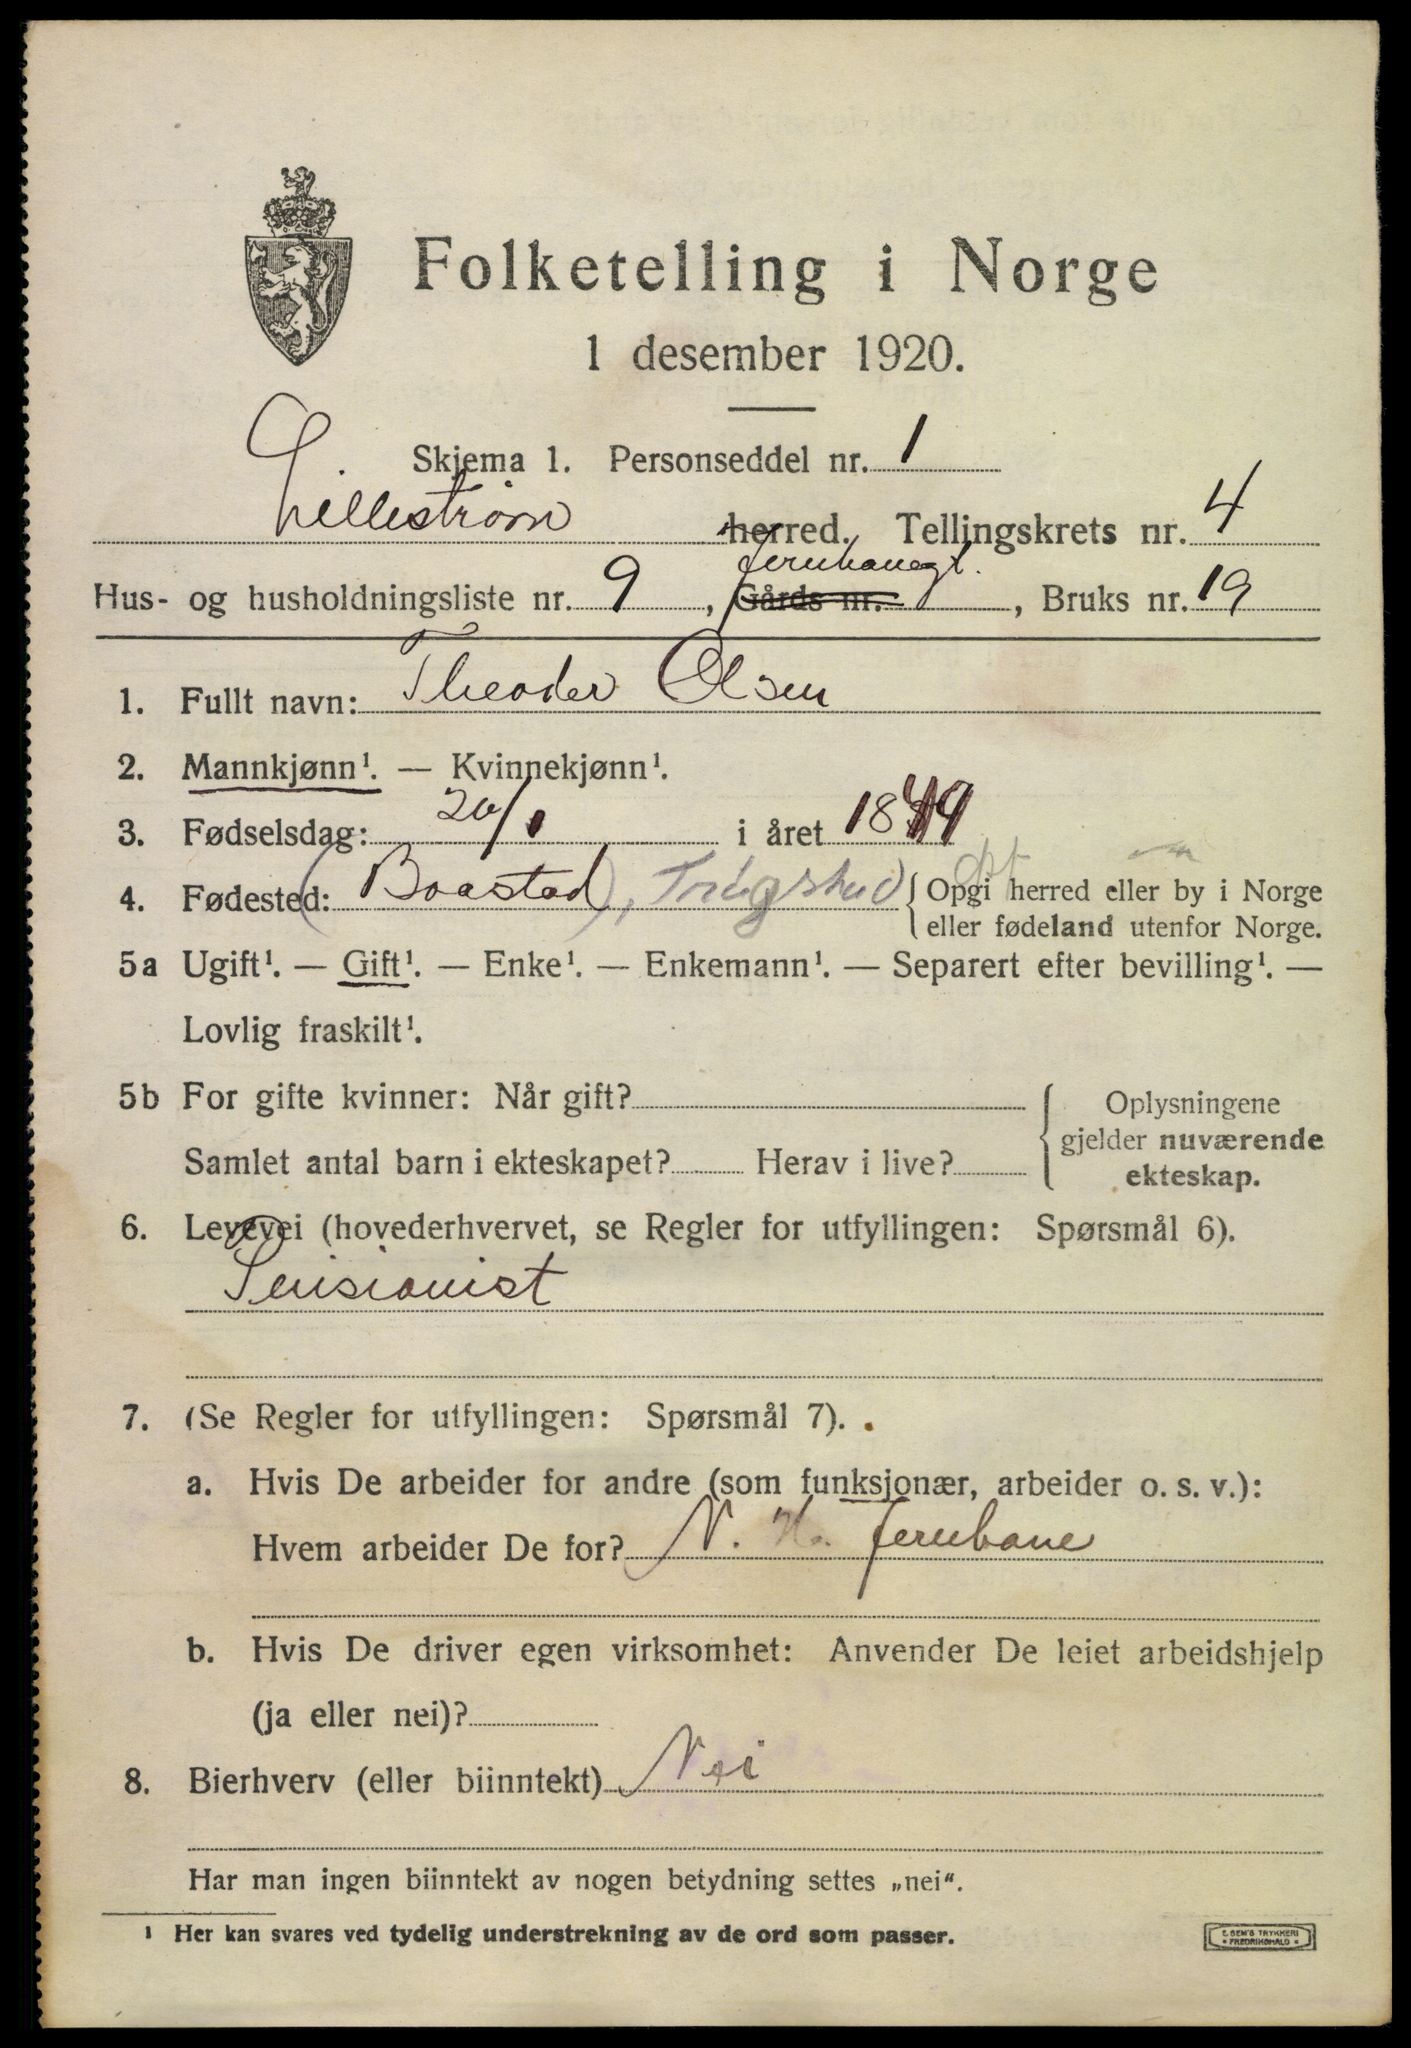 Folketelling i Norge
1 desember 1920.
Skjema 1. Personseddel nr. 1
Lilleström herred. Tellingskrets nr. 4
Jernbanegt.
Hus- og husholdningsliste nr. 9, Gårds nr. , Bruks nr. 19
1. Fullt navn: Theodor Olsen
2. Mannkjønn¹. — Kvinnekjønn¹.
3. Fødselsdag: 20/1 i året 1849
4. Fødested: (Baastad), Trøgstad { Opgi herred eller by i Norge
eller fødeland utenfor Norge.
5a Ugift¹. — Gift¹. — Enke¹. — Enkemann¹. — Separert efter bevilling¹. —
Lovlig fraskilt¹.
5b For gifte kvinner: Når gift? { Oplysningene
gjelder nuværende
Samlet antal barn i ekteskapet? Herav i live? ekteskap.
6. Levevei (hovederhvervet, se Regler for utfyllingen: Spørsmål 6).
Pensionist
7. (Se Regler for utfyllingen: Spørsmål 7).
a. Hvis De arbeider for andre (som funksjonær, arbeider o. s. v.):
Hvem arbeider De for? N. H. Jernbane
b. Hvis De driver egen virksomhet: Anvender De leiet arbeidshjelp
(ja eller nei)?
8. Bierhverv (eller biinntekt) Nei
Har man ingen biinntekt av nogen betydning settes „nei".
¹ Her kan svares ved tydelig understrekning av de ord som passer.
E. SEM'S TRYKKERI
FREDRIKSHALD